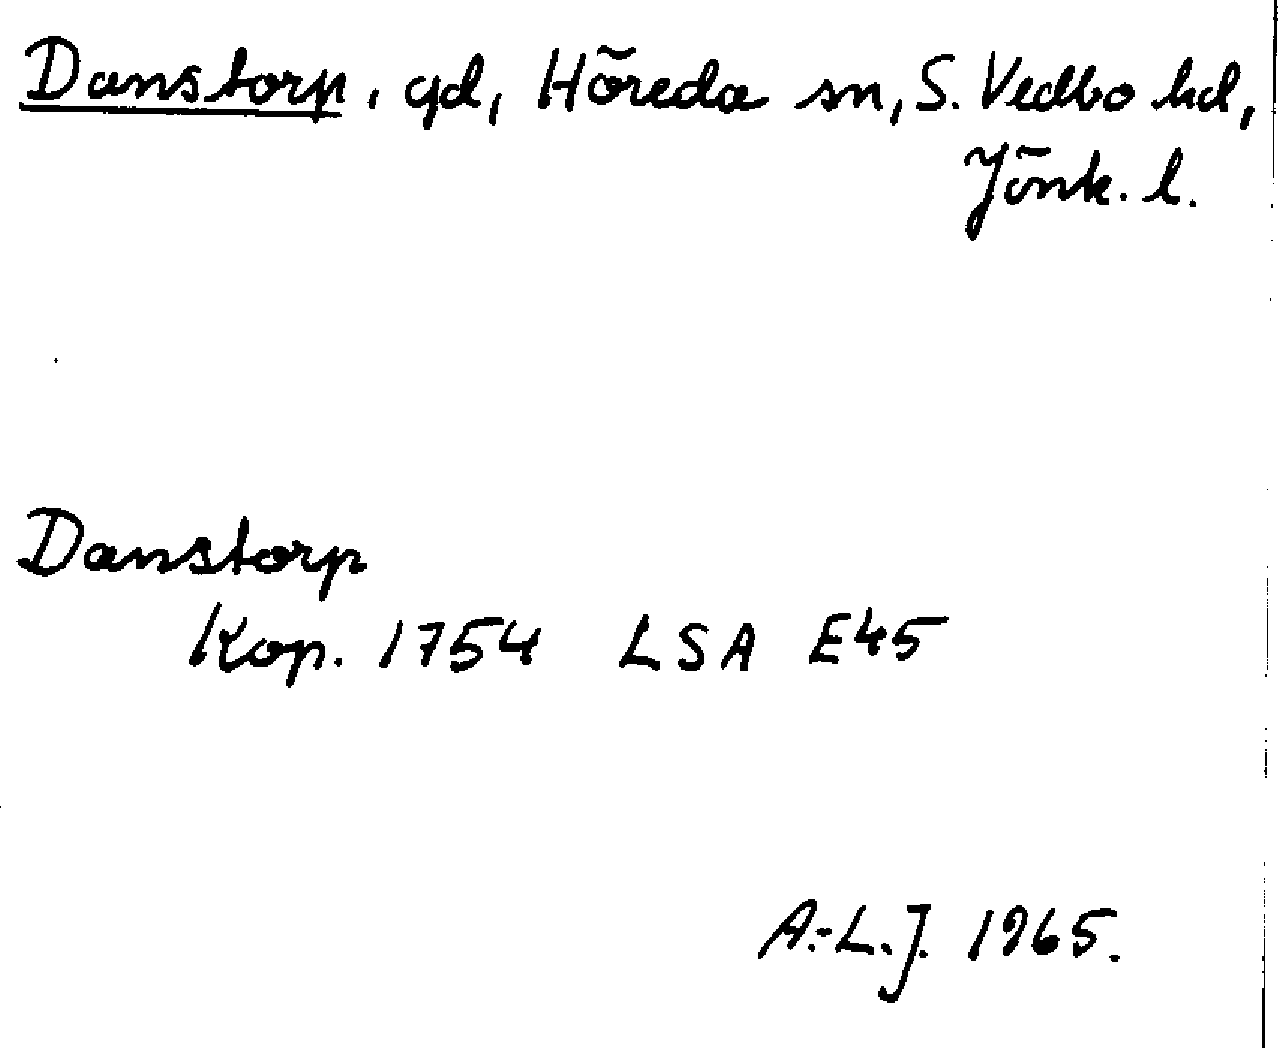 Danstorp, gd, Höreda sn, S. Vedbo hd,
Jönk. l.
Danstorp
Kop. 1754 LSA E45
A.-L.J. 1965.